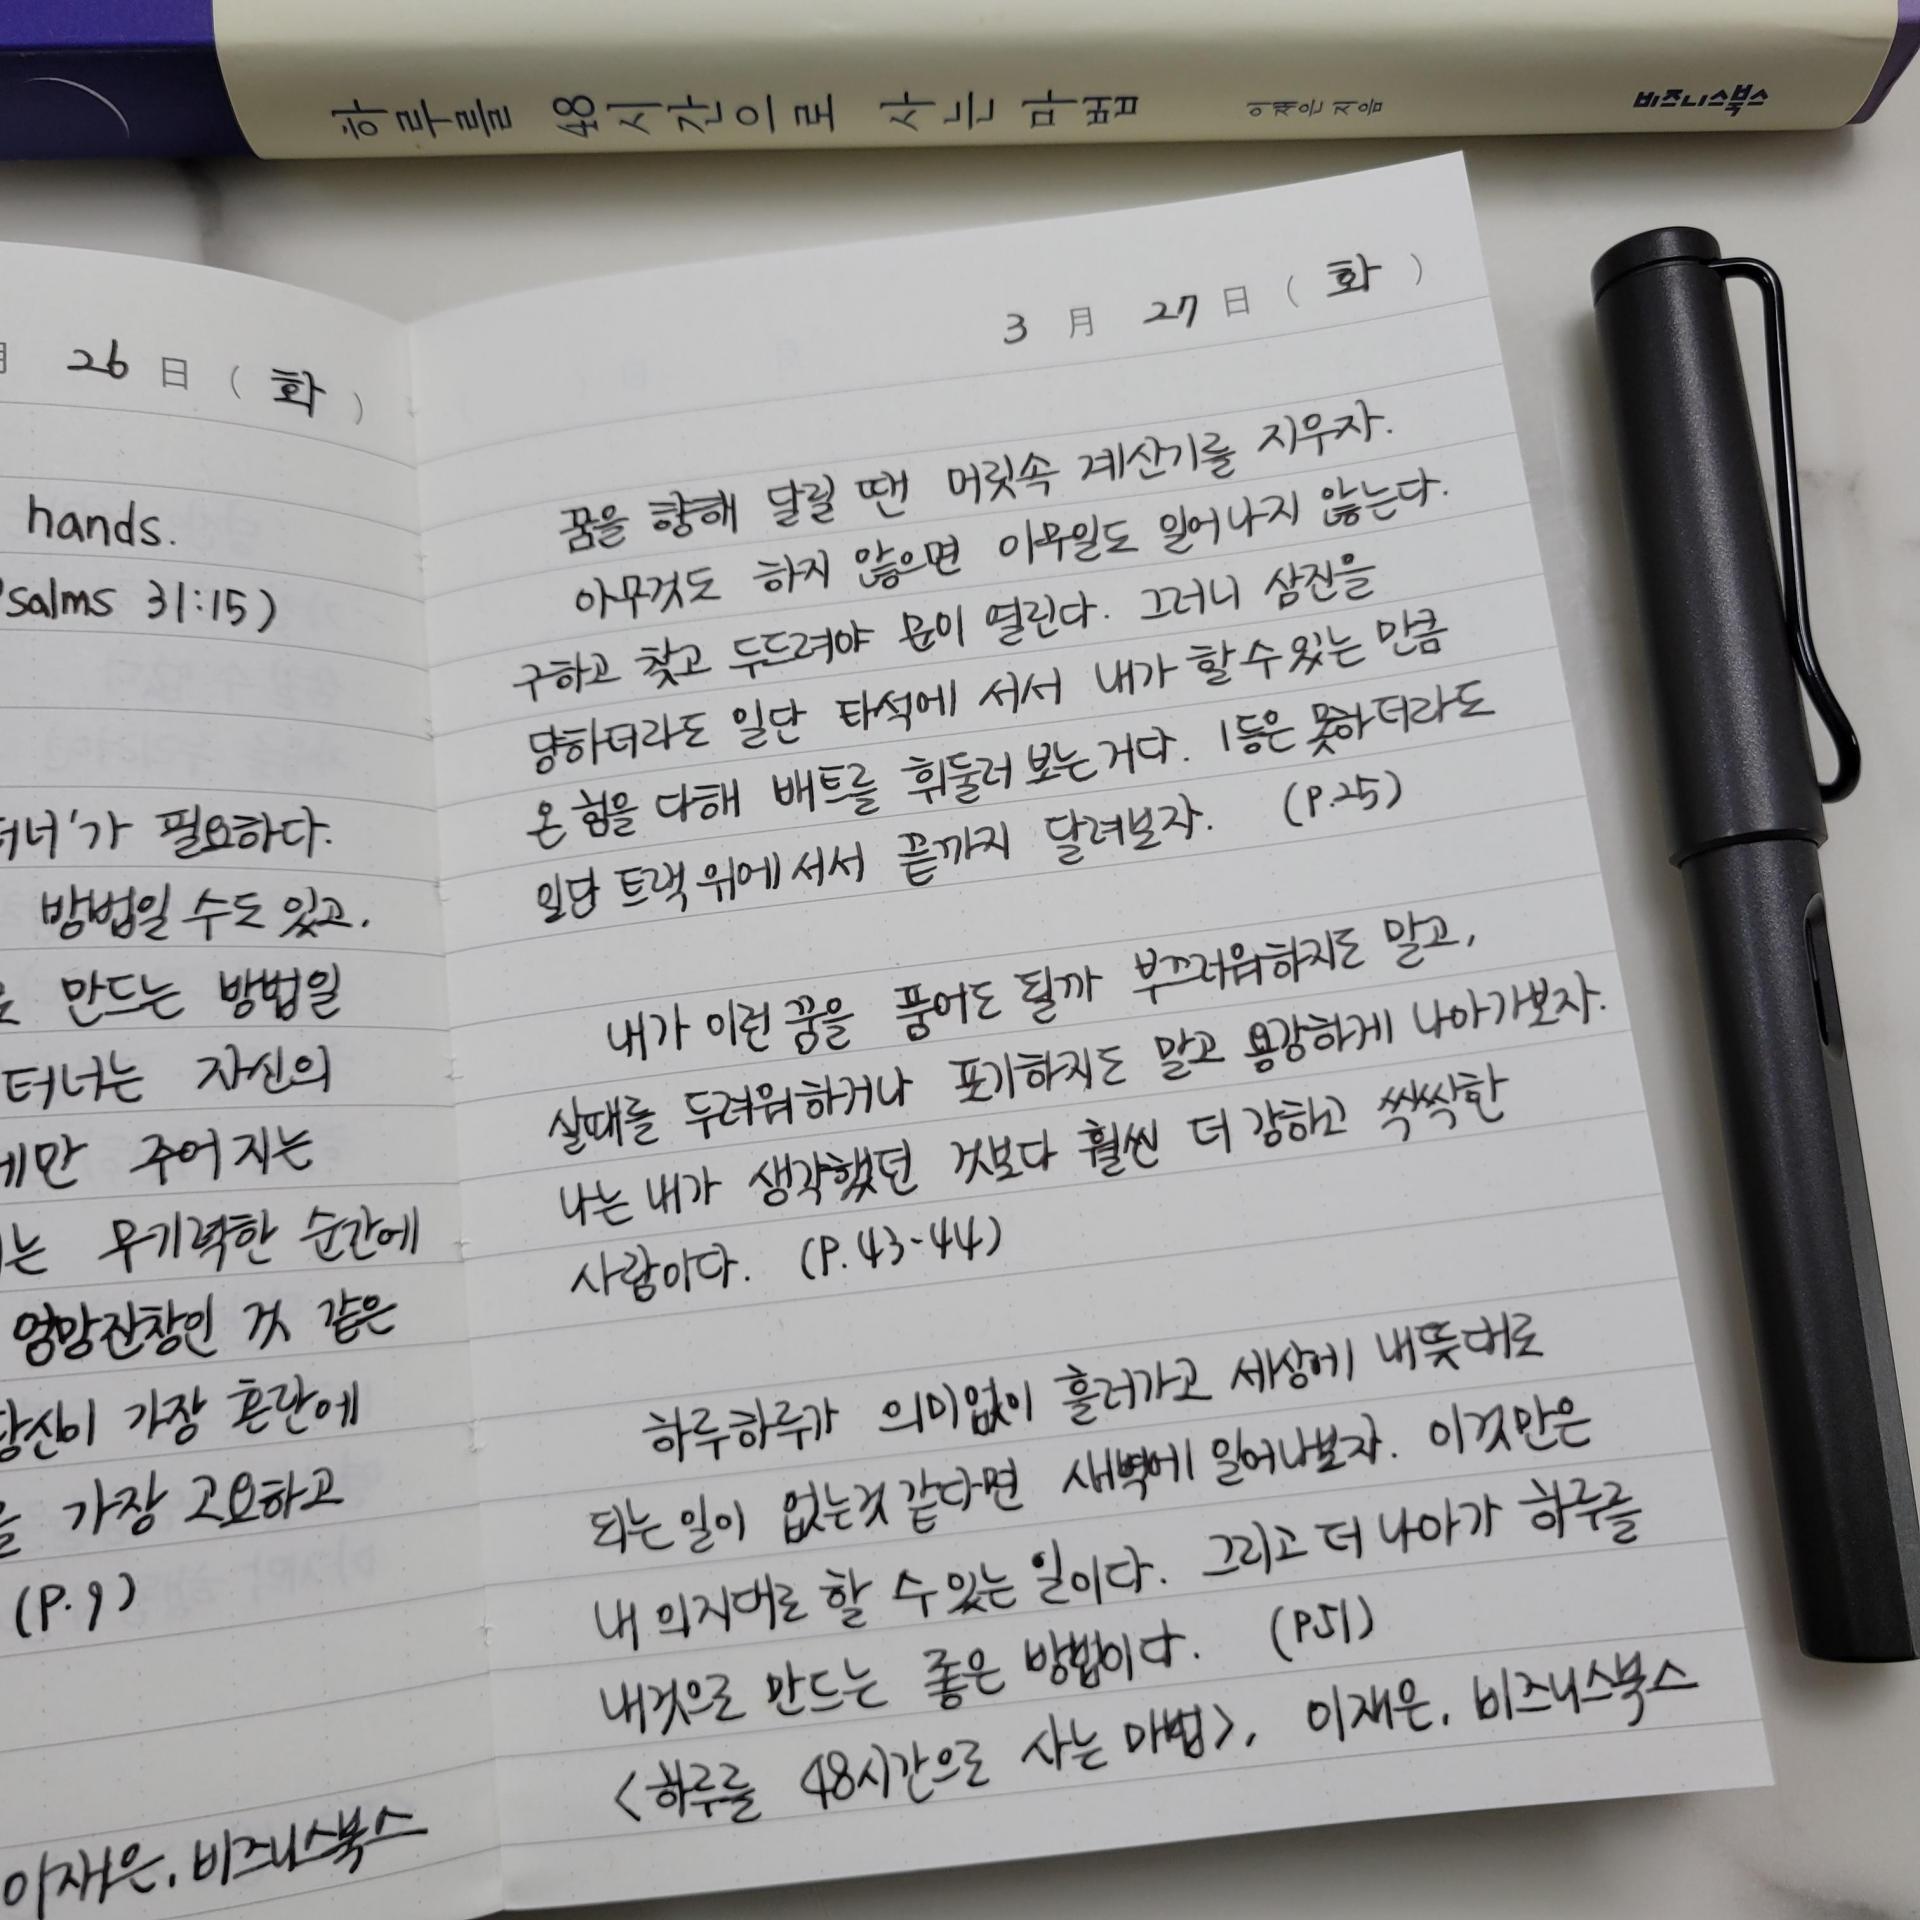 하루를 48시간으로 사는 마법 이재은 지음 비즈니스북스
月 26 日 ( 화 )
hands.
salms 31:15)
터너'가 필요하다.
방법일 수도 있고,
만드는 방법일
터너는 자신의
에만 주어지는
는 무기력한 순간에
엉망진창인 것 같은
당신이 가장 혼란에
을 가장 고요하고
(P.9)
이재은, 비즈니스북스
3 月 27 日 ( 화 )
꿈을 향해 달릴 땐 머릿속 계산기를 지우자.
아무것도 하지 않으면 아무일도 일어나지 않는다.
구하고 찾고 두드려야 문이 열린다. 그러니 삼진을
당하더라도 일단 타석에 서서 내가 할 수 있는 만큼
온 힘을 다해 배트를 휘둘러 보는 거다. 1등은 못하더라도
일단 트랙 위에 서서 끝까지 달려보자. (P.25)
내가 이런 꿈을 품어도 될까 부끄러워하지도 말고,
살때를 두려워하거나 포기하지도 말고 용감하게 나아가보자.
나는 내가 생각했던 것보다 훨씬 더 강하고 씩씩한
사람이다. (P.43-44)
하루하루가 의미없이 흘러가고 세상에 내뜻대로
되는 일이 없는것 같다면 새벽에 일어나보자. 이것만은
내 의지대로 할 수 있는 일이다. 그리고 더 나아가 하루를
내것으로 만드는 좋은 방법이다. (P.51)
<하루를 48시간으로 사는 마법>, 이재은, 비즈니스북스